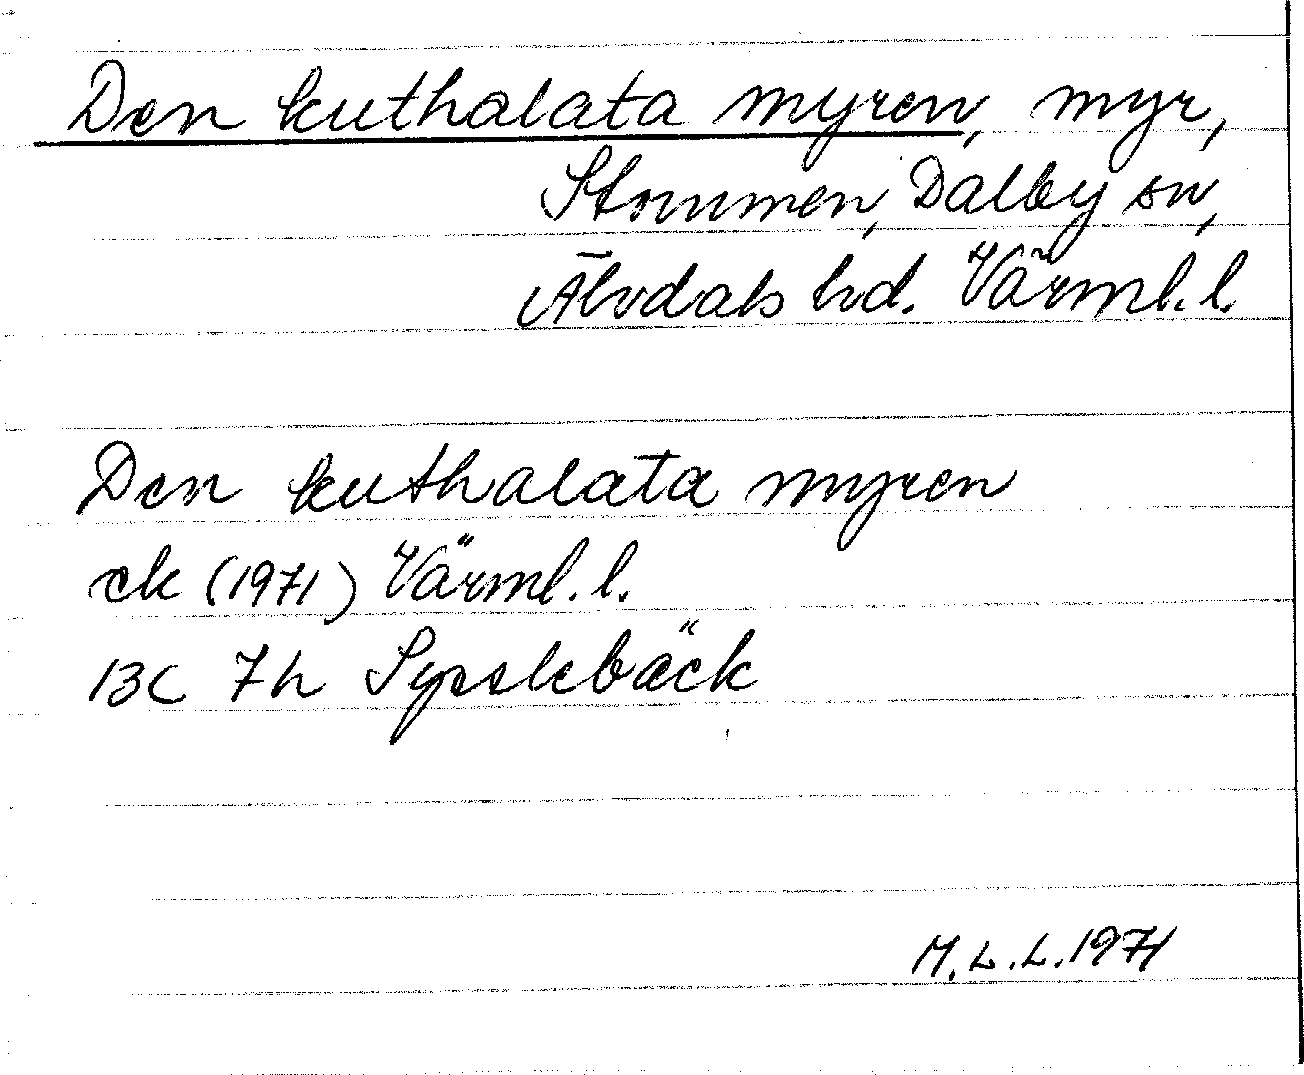 Den kuthalata myren, myr,
Stommen, Dalby sn,
Älvdals hd. Värml. l.
Den kuthalata myren
ek (1971) Värml. l.
13C 7h Sysslebäck
M.L.L. 1971